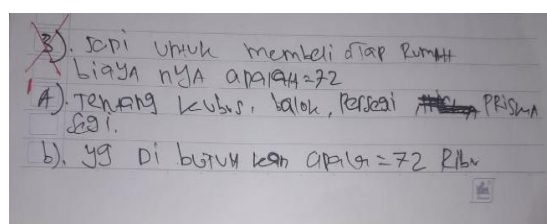 3). Jadi untuk membeli tiap Rumah
biaya nya apalah=72
A). Tentang kubus, balok, Persegi PRISMA
segi.
b). yg Di butuh kan apala=72 Ribu